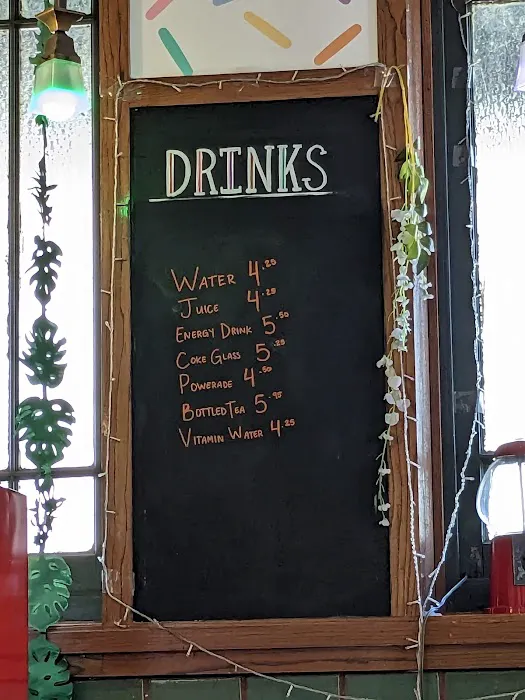 DRINKS
WATER 4.25
JUICE 4.25
ENERGY DRINK 5.50
COKE GLASS 5.25
POWERADE 4.50
BOTTLED TEA 5.95
VITAMIN WATER 4.25